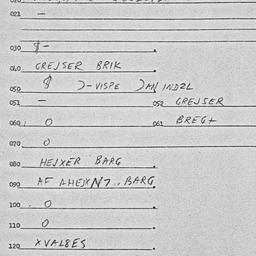 021 –
030 $ –
040 GREJSER BRIK
050 $ )-VISPE
051 – 052 GREJSER
060 0 061 BREG+
070 0
080 HEJXER BARG
090 AF AHEJX BARG
100 0
110 0
120 XVAL8ES